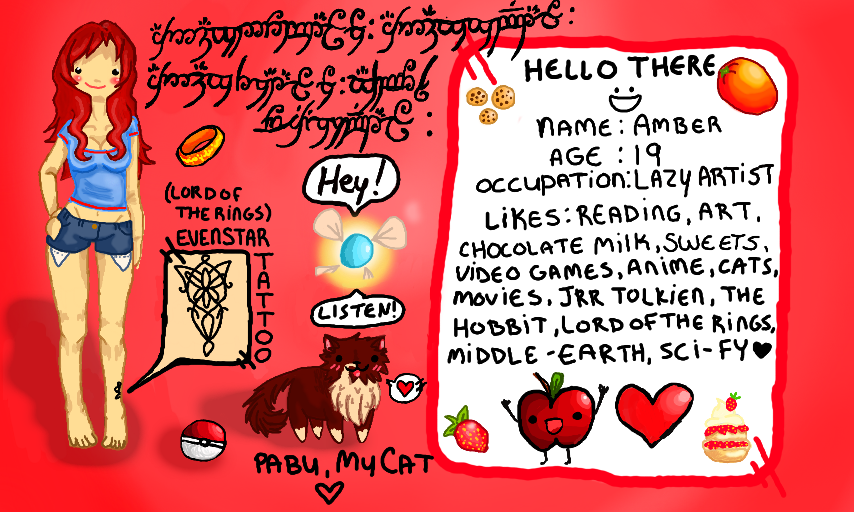 HELLO THERE
NAME: AMBER
AGE : 19
OCCUPATION: LAZY ARTIST
LIKES: READING, ART,
CHOCOLATE MILK, SWEETS,
VIDEO GAMES, ANIME, CATS,
MOVIES, JRR TOLKIEN, THE
HOBBIT, LORD OF THE RINGS,
MIDDLE-EARTH, SCI-FY
Hey!
(LORD OF
THE RINGS)
EVENSTAR
TATTOO
LISTEN!
PABU, MY CAT